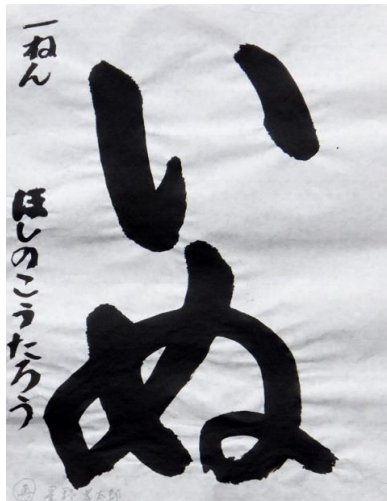 いぬ
一ねん
ほしのこうたろう